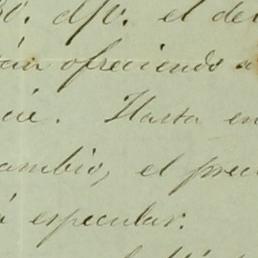 el de
án ofreciendo a
cie. Hasta en
ambio, el prec
á especular.